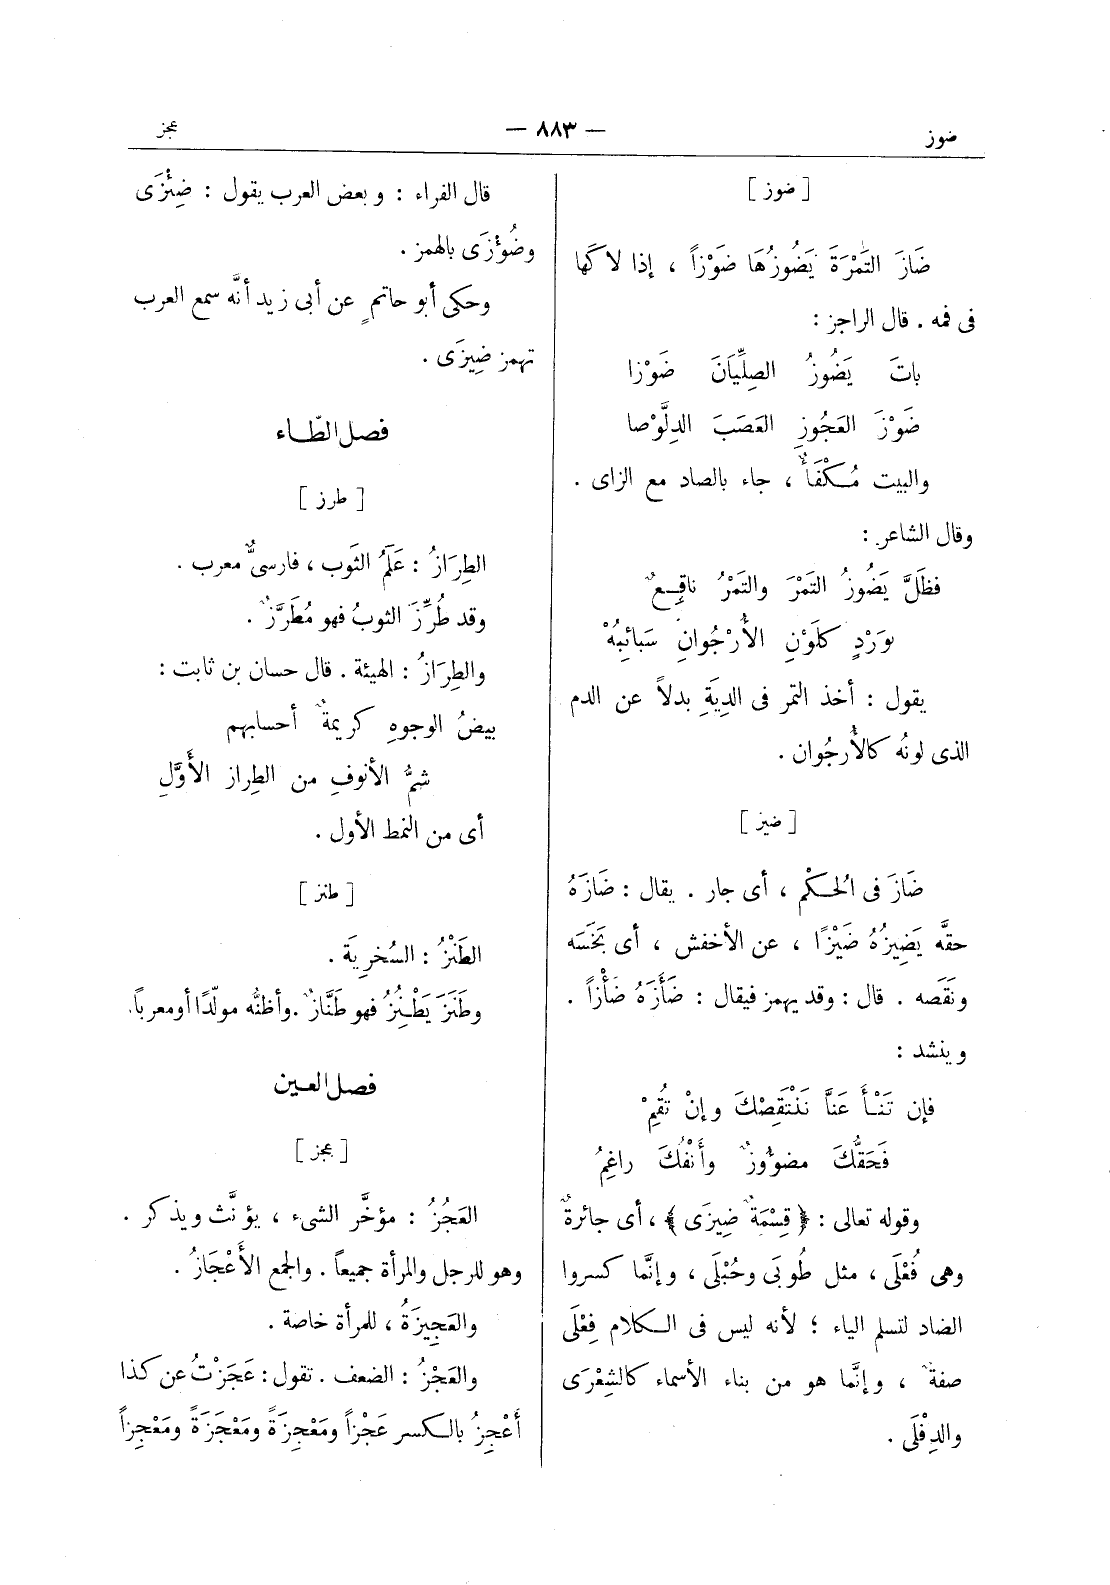 ضوز
— ٨٨٣ —
عجز
[ ضوز ]
ضَازَ التَمْرَةَ يَضُوزُهَا ضَوْزاً ، إذا لاكَها
فى فمه . قال الراجز :
باتَ يَضُوزُ الصِلِّيَانَ ضَوْزا
ضَوْزَ العَجُوزِ العَصَبَ الدِلَّوْصا
والبيت مُكْفَأٌ ، جاء بالصاد مع الزاى .
وقال الشاعر :
فظَلَّ يَضُوزُ التَمْرَ والتَمْرُ ناقِعٌ
بوَرْدٍ كلَوْنِ الأُرْجُوانِ سَبائِبُهْ
يقول : أخذ التمر فى الدِيَةِ بدلاً عن الدم
الذى لونُه كالأُرجُوان .
[ ضيز ]
ضَازَ فى الحُكْم ، أى جار . يقال : ضَازَهُ
حقَّه يَضِيزُهُ ضَيْزًا ، عن الأخفش ، أى بَخَسَه
ونَقَصه . قال : وقد يهمز فيقال : ضَأَزَهُ ضَأْزاً .
وينشد :
فإن تَنْأَ عَنَّا نَنْتَقِصْكَ وإنْ تُقِمْ
فَحَقُّكَ مضؤوزٌ وأَنْفُكَ راغِمُ
وقوله تعالى : ﴿ قِسْمَةٌ ضِيزَى ﴾ ، أى جائرةٌ
وهى فُعْلَى ، مثل طُوبَى وحُبْلَى ، وإنَّما كسروا
الضاد لتسلم الياء ؛ لأنه ليس فى الكلام فِعْلَى
صفةٌ ، وإنَّما هو من بناء الأسماء كالشِعْرَى
والدِفْلَى .
قال الفراء : وبعض العرب يقول : ضِئْزَى
وضُؤْزَى بالهمز .
وحكى أبو حاتمٍ عن أبى زيد أنَّه سمع العرب
تهمز ضِيزَى .
فصل الطّاء
[ طرز ]
الطِرَازُ : عَلَمُ الثَوب ، فارسىٌّ معرب .
وقد طُرِّزَ الثوبُ فهو مُطَرَّزٌ .
والطِرَازُ : الهيئة . قال حسان بن ثابت :
بيضُ الوجوهِ كريمةٌ أحسابهم
شمُّ الأنوفِ من الطِراز الأَوَّلِ
أى من النمط الأول .
[ طنز ]
الطَنْزُ : السُخرِيَة .
وطَنَزَ يَطْنِزُ فهو طَنَّازٌ . وأظنُّه مولّدًا أو معرباً.
فصل العين
[ عجز ]
العَجُزُ : مؤخَّر الشىء ، يؤنَّث ويذكر .
وهو للرجل والمرأة جميعاً . والجمع الأَعْجَازُ .
والعَجِيزَةُ ، للمرأة خاصة .
والعَجْزُ : الضعف . تقول : عَجَزْتُ عن كذا
أَعْجِزُ بالكسر عَجْزاً ومَعْجِزَةً ومَعْجَزَةً ومَعْجِزاً